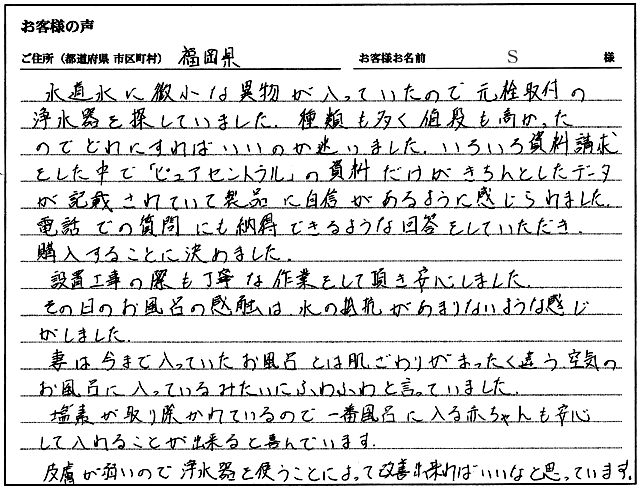 お客様の声
ご住所（都道府県 市区町村） 福岡県 お客様お名前 S 様
水道水に微小な異物が入っていたので元栓取付の
浄水器を探していました。種類も多く値段も高かった
のでどれにすればいいのか迷いました。いろいろ資料請求
をした中で「ピュアセントラル」の資料だけがきちんとしたデータ
が記載されていて製品に自信があるように感じられました。
電話での質問にも納得できるような回答をしていただき、
購入することに決めました。
設置工事の際も丁寧な作業をして頂き安心しました。
その日のお風呂の感触は水の抵抗があまりないような感じ
がしました。
妻は今まで入っていたお風呂とは肌ざわりがまったく違う空気の
お風呂に入っているみたいにふわふわと言っていました。
塩素が取り除かれているので一番風呂に入る赤ちゃんも安心
して入れることが出来ると喜んでいます。
皮膚が弱いので浄水器を使うことによって改善出来ればいいなと思っています。